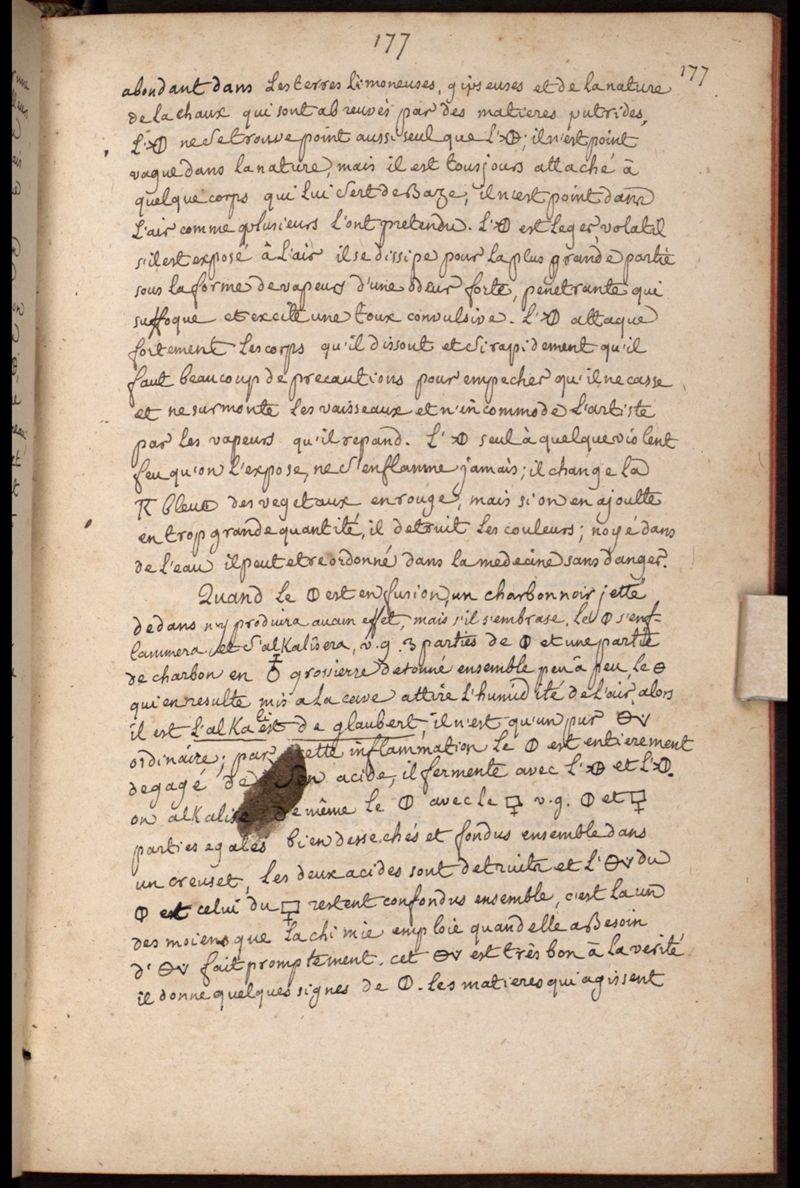 177
177
abondant dans les terres limoneuses, gipseuses et de la nature
de la chaux qui sont abreuvés par des matieres putrides,
L'🜊⦶ ne se trouve point aussi seul que l'🜊⦶; il n'est point
vague dans la nature, mais il est tousjours attaché à
quelque corps qui lui sert de Baze, il n'est point dans
L'air comme plusieurs l'ont pretendu. L'🜊⦶ est leger volatil
s'il est exposé à L'air il se dissipe pour la plus grande partie
sous la forme de vapeurs d'une odeur forte, penetrante qui
suffoque et excite une toux convulsive. L'🜊⦶ attaque
fortement les corps qu'il dissout et si rapidement qu'il
faut beaucoup de precautions pour empecher qu'il ne casse
et ne surmonte les vaisseaux et n'incommode L'artiste
par les vapeurs qu'il repand. L'🜊⦶ seul à quelque violent
feu qu'on l'expose, ne s'enflamme jamais; il change la
bleue des vegetaux en rouge, mais si on en ajoutte
en trop grande quantité, il detruit les couleurs; noyé dans
de l'eau il peut etre ordonné dans la medecine sans danger.
Quand le ⦶ est en fusion, un charbon noir jetté
dedans n'y produira aucun effet, mais s'il s'embrase, le ⦶ s'enf-
lammera et s'alkalisera, v.g. 3 parties de ⦶ et une partie
de charbon en ♁ grossierre detonné ensemble peu à peu, le ⊖
qui en resulte mis a la cave attire l'humidité de l'air, alors
il est L'alkaest de glaubert, il n'est qu'un pur ⊖v
ordinaire; par cette inflammation le ⦶ est entierement
degagé de son acide, il fermente avec l'🜊⊕ et l'🜊⦶.
on alkalise de même le ⦶ avec le 🜿 v.g. ⦶ et 🜿
parties egales bien dessechés et fondus ensemble dans
un creuset, Les deux acides sont detruits et l'⊖v du
⦶ et celui du 🜿 restent confondus ensemble, c'est la un
des moiens que la chimie emploie quand elle a Besoin
d'⊖v fait promptement. cet ⊖v est très bon à la verité
il donne quelques signes de ⦶. Les matieres qui agissent